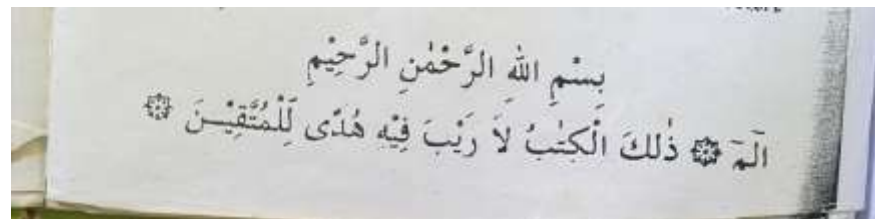 بِسْمِ اللهِ الرَّحْمٰنِ الرَّحِيْمِ
الٓمٓ ۞ ذٰلِكَ الْكِتٰبُ لاَ رَيْبَ فِيْهِ هُدًى لِّلْمُتَّقِيْـنَ ۞